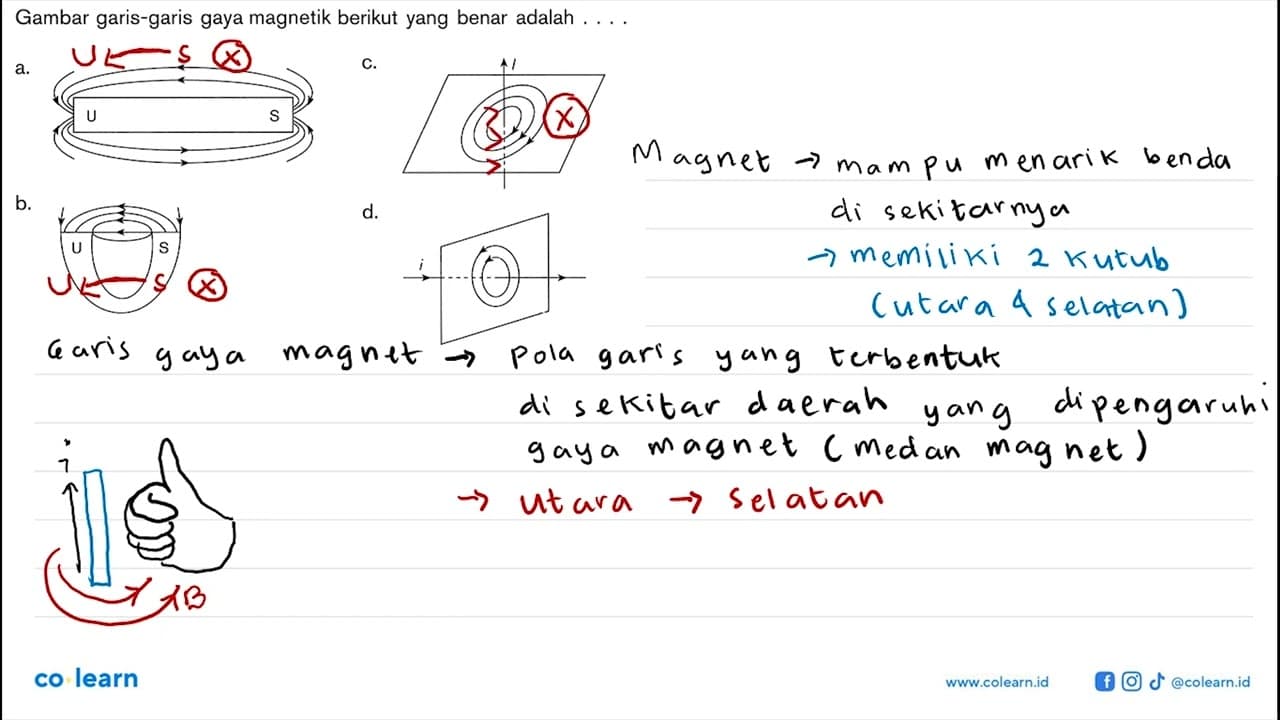 Gambar garis-garis gaya magnetik berikut yang benar adalah . . . .
a.
U ← S X
U S
b.
U S
U ← S X
c.
I
X
d.
i
Magnet → mampu menarik benda
di sekitarnya
→ memiliki 2 kutub
(utara & selatan)
Garis gaya magnet → Pola garis yang terbentuk
di sekitar daerah yang dipengaruhi
gaya magnet (medan magnet)
→ utara → selatan
i
B
co learn
www.colearn.id
@colearn.id